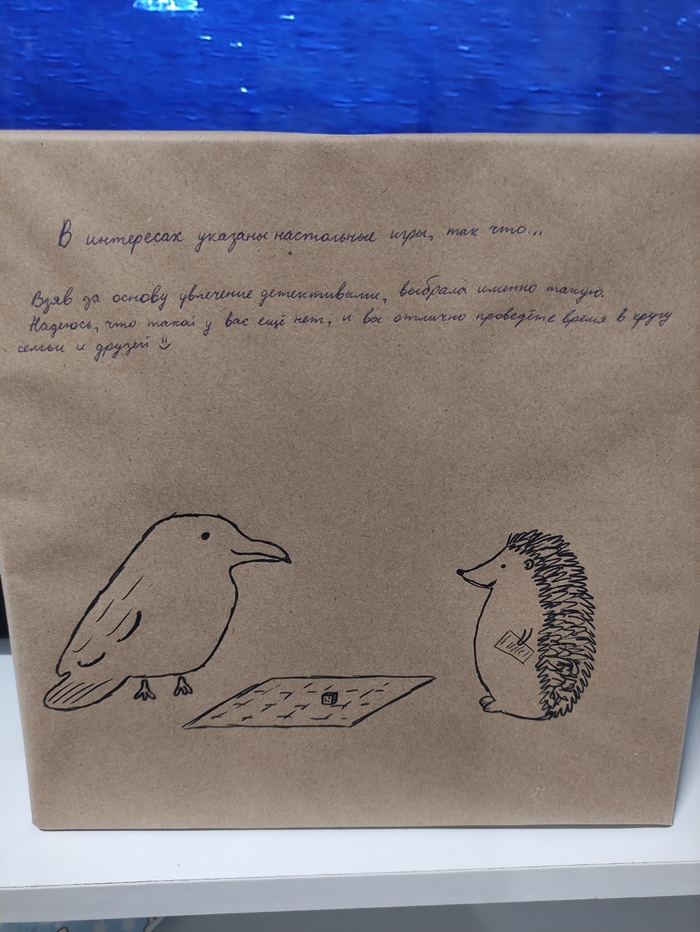 В интересах указаны настольные игры, так что...
Взяв за основу увлечение детективами, выбрала именно такую.
Надеюсь, что такой у вас ещё нет, и вы отлично проведёте время в кругу
семьи и друзей